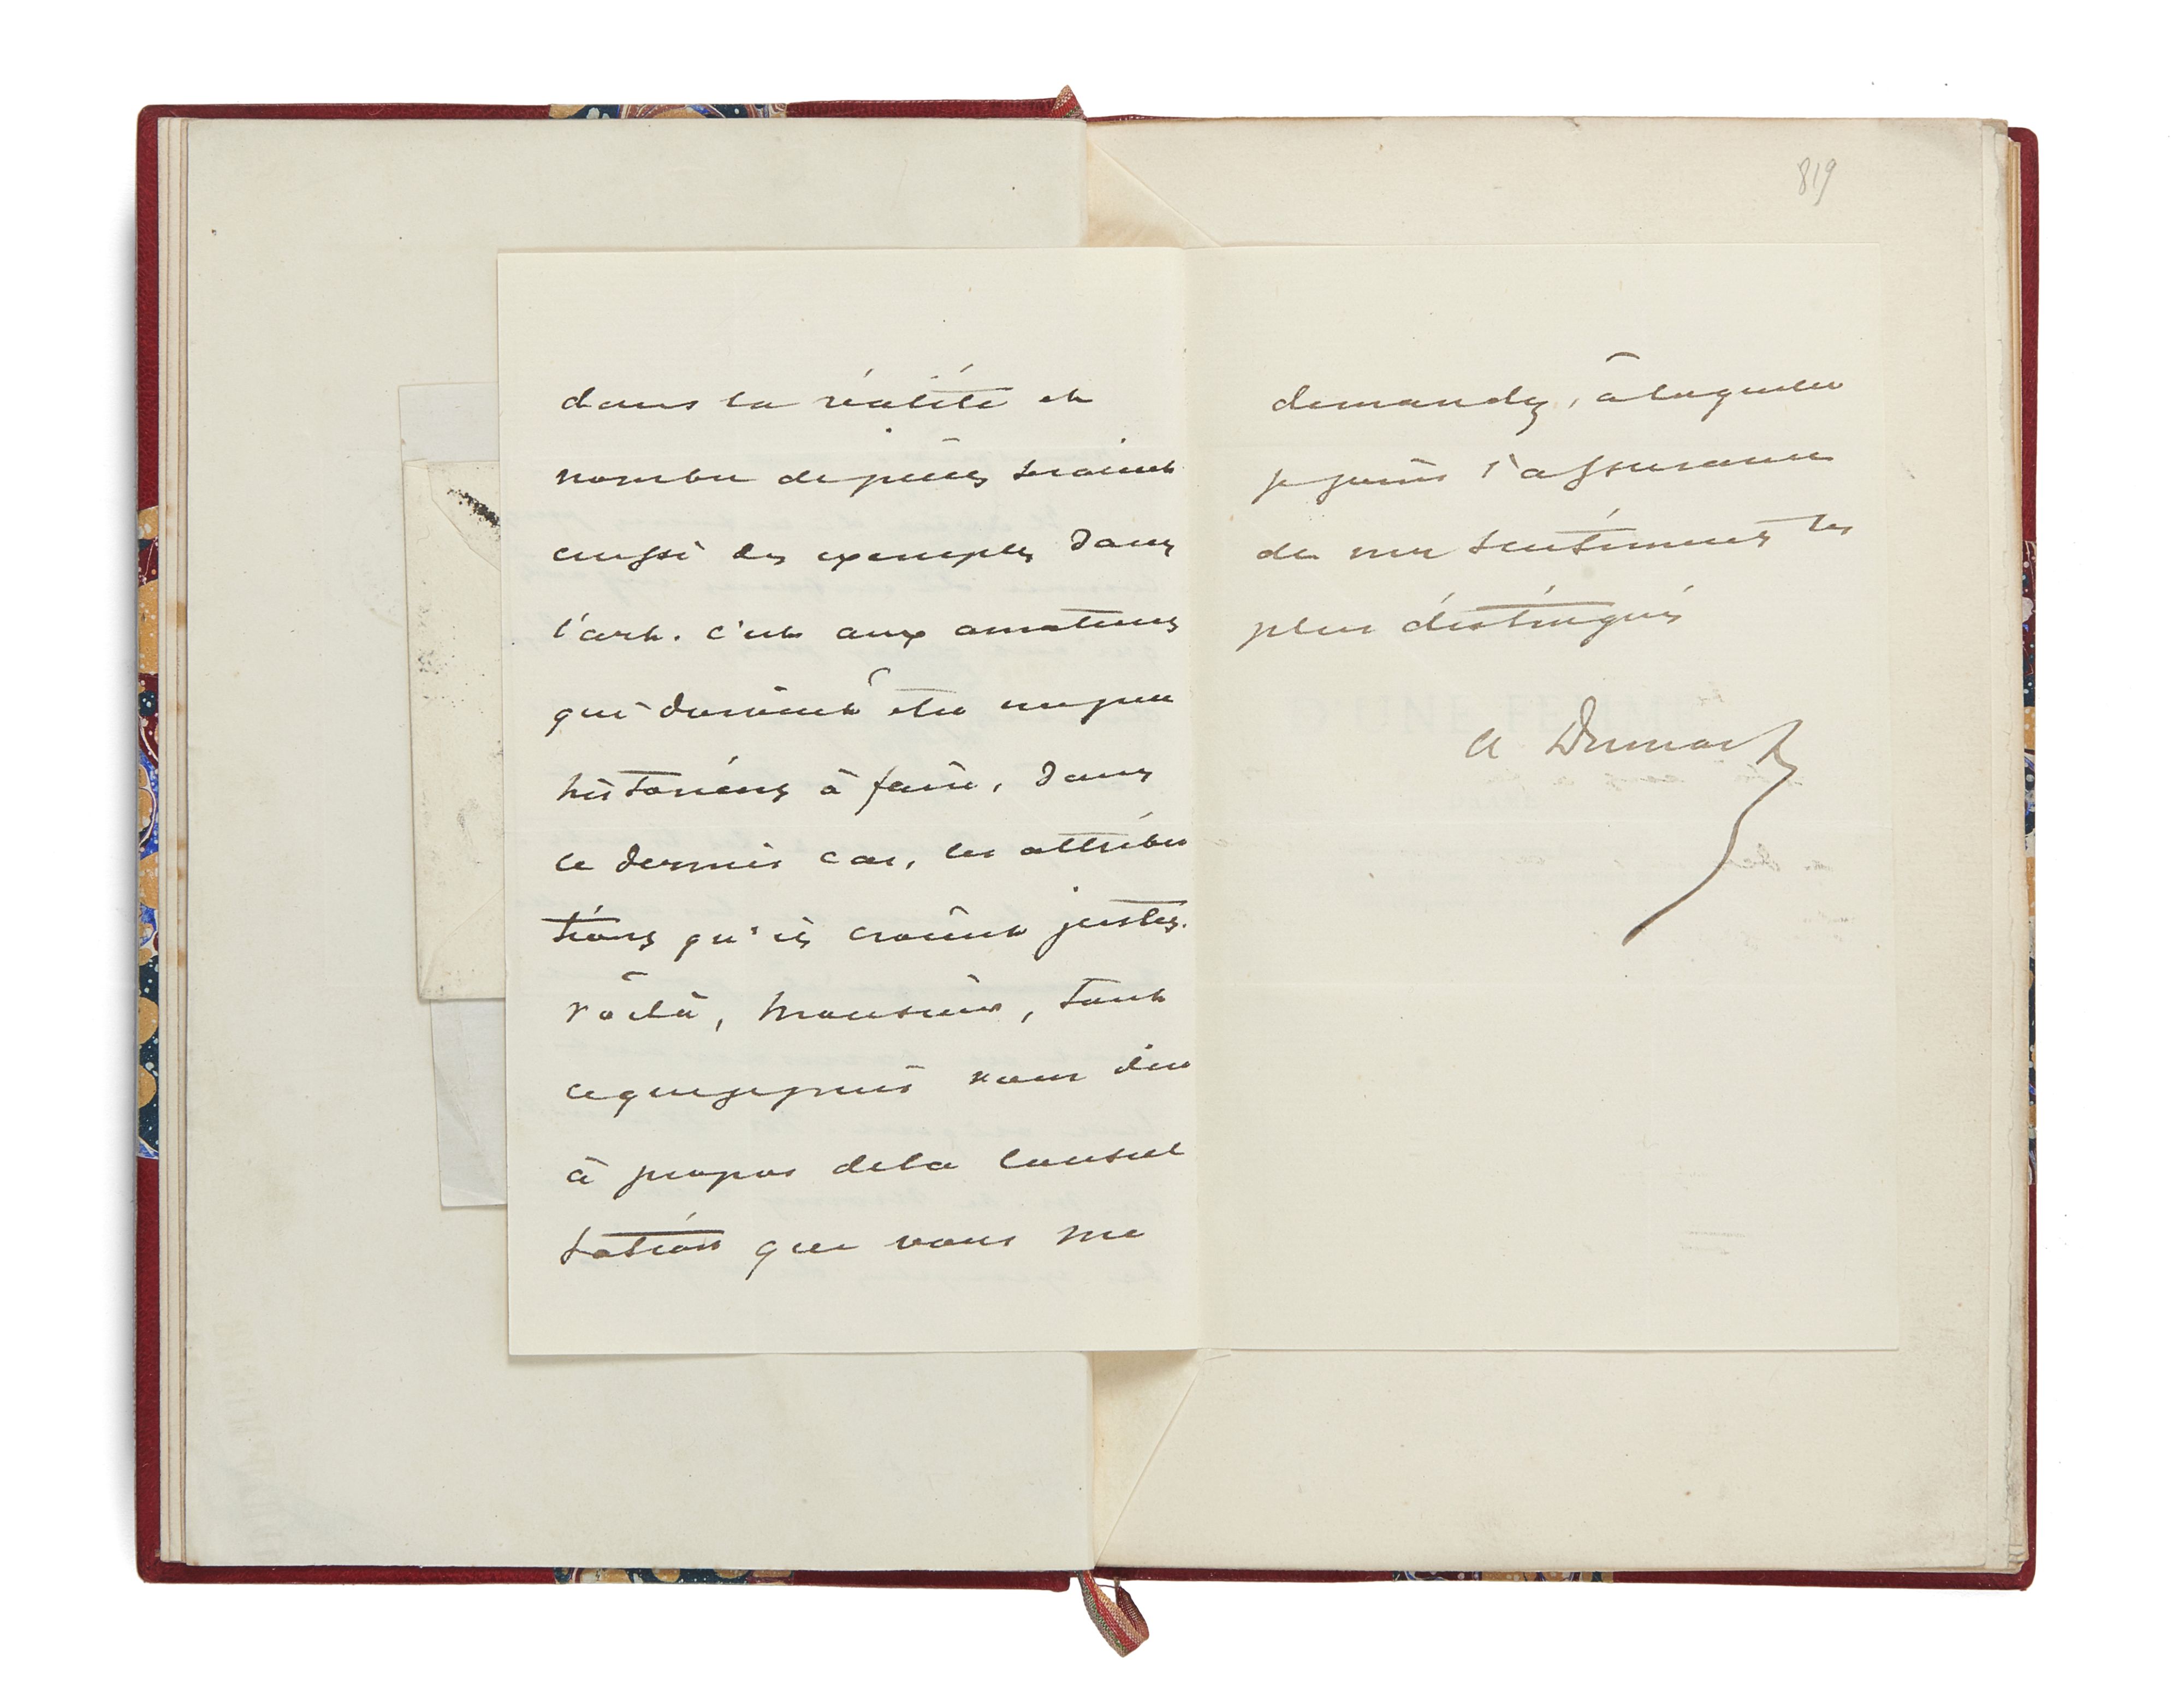 819
dans la réalité et
nombre de pièces seraient
aussi des exemples dans
l'art. c'est aux amateurs
qui devraient être un peu
historiens à faire, dans
ce dernier cas, les attribu
tions qu'ils croient justes.
Voilà, Monsieur, tout
ce que je puis vous dire
à propos de la consul
tation que vous me
demandez, à laquelle
je joins l'assurance
de mes sentiments les
plus distingués
A Dumas f